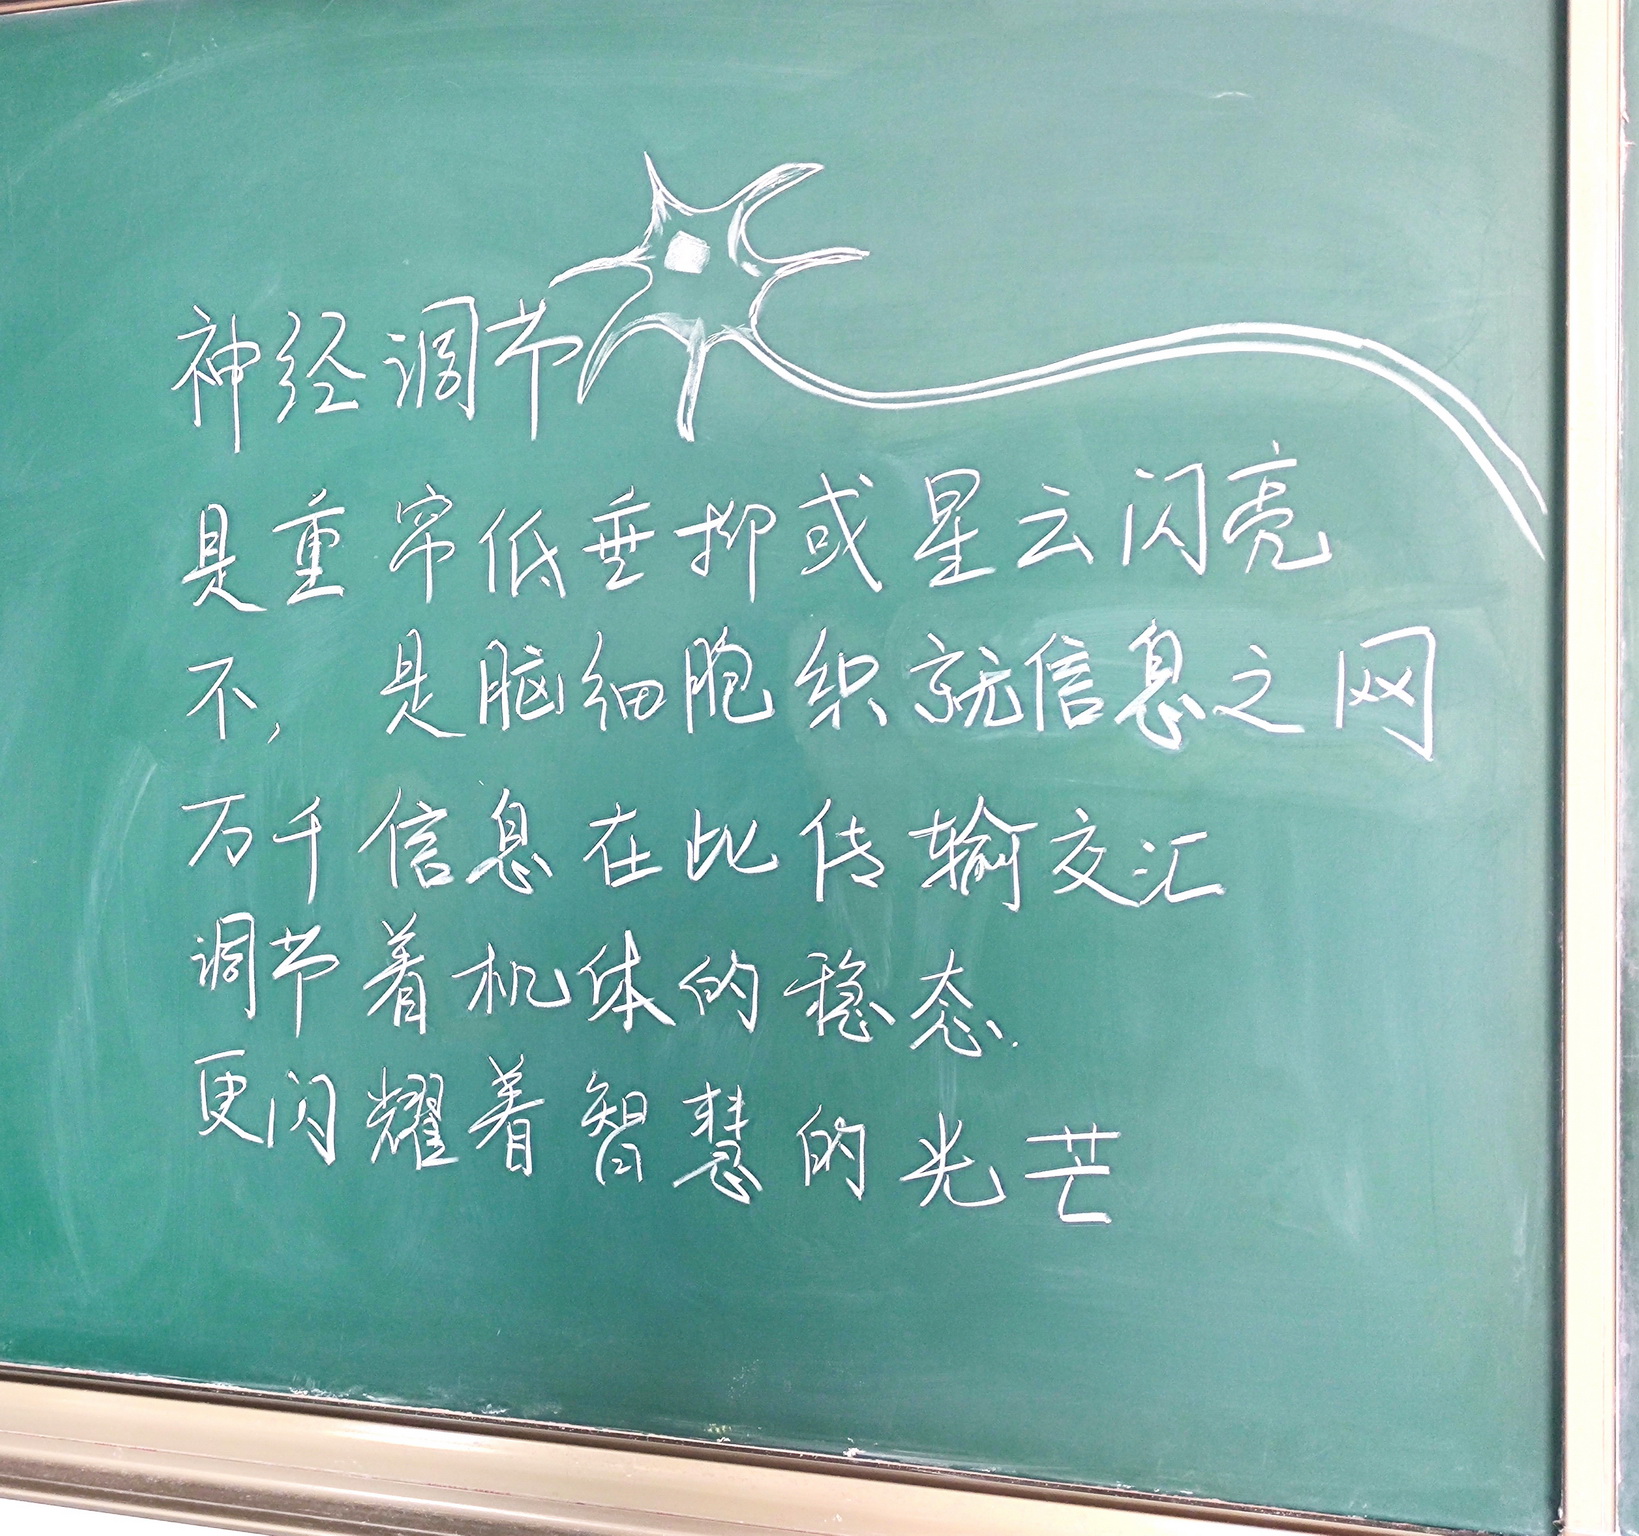 神经调节
是重帘低垂抑或星云闪亮
不，是脑细胞织就信息之网
万千信息在此传输交汇
调节着机体的稳态.
更闪耀着智慧的光芒